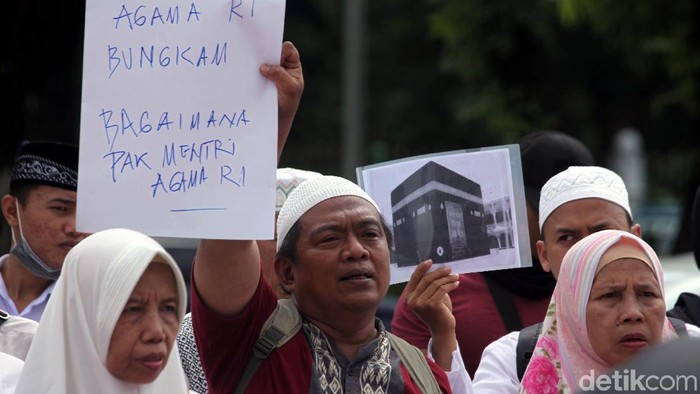 AGAMA RI
BUNGKAM
BAGAIMANA
PAK MENTRI
AGAMA RI
detikcom